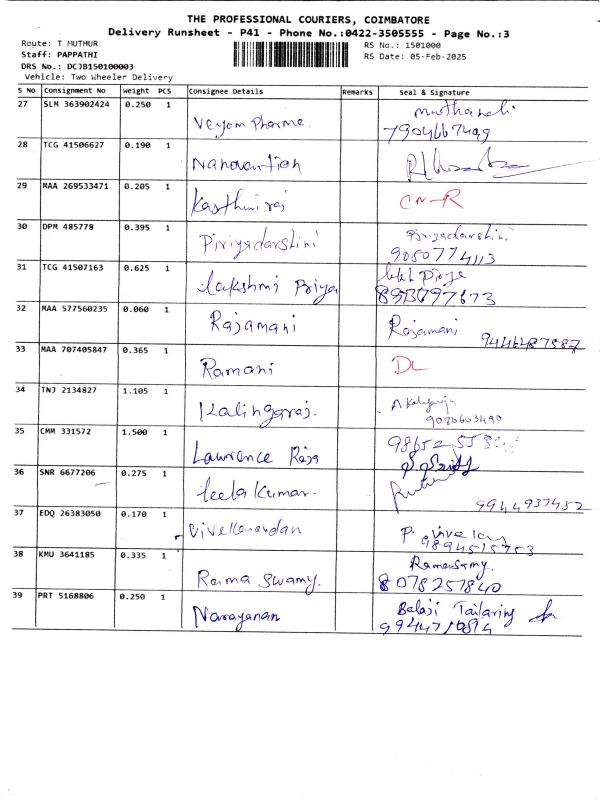 THE PROFESSIONAL COURIERS, COIMBATORE
Delivery Runsheet - P41 - Phone No.:0422-3505555 - Page No.:3
Route: T MUTHUR
RS No.: 1501000
Staff: PAPPATHI
RS Date: 05-Feb-2025
DRS No.: DCJB150100003
Vehicle: Two Wheeler Delivery
S No Consignment No Weight PCS Consignee Details Remarks Seal & Signature
27 SLM 363902424 0.250 1
Veyom Pharme.
7904667499
28 TCG 41506627 0.190 1
29 MAA 269533471 0.205 1
Kasthuriraj
30 DPM 485778 0.395 1
Piriyadarshini Piriyadarshini
9080774113
31 TCG 41507163 0.625 1
Lakshmi Priya
32 MAA 577560235 0.060 1
Rajamani Rajamani
9446487587
33 MAA 707405847 0.365 1
Ramani DL
34 TNJ 2134827 1.105 1
Kalingaraj.
35 CMM 331572 1.500 1
Lawrence Raja
36 SNR 6677206 0.275 1
leela Kumar.
9944937452
37 EDQ 26383050 0.170 1
Vivekanandan
9894515753
38 KMU 3641185 0.335 1
Rama Swamy. Ramasamy.
8078257840
39 PRT 5168806 0.250 1
Narayanan Balaji Tailaring